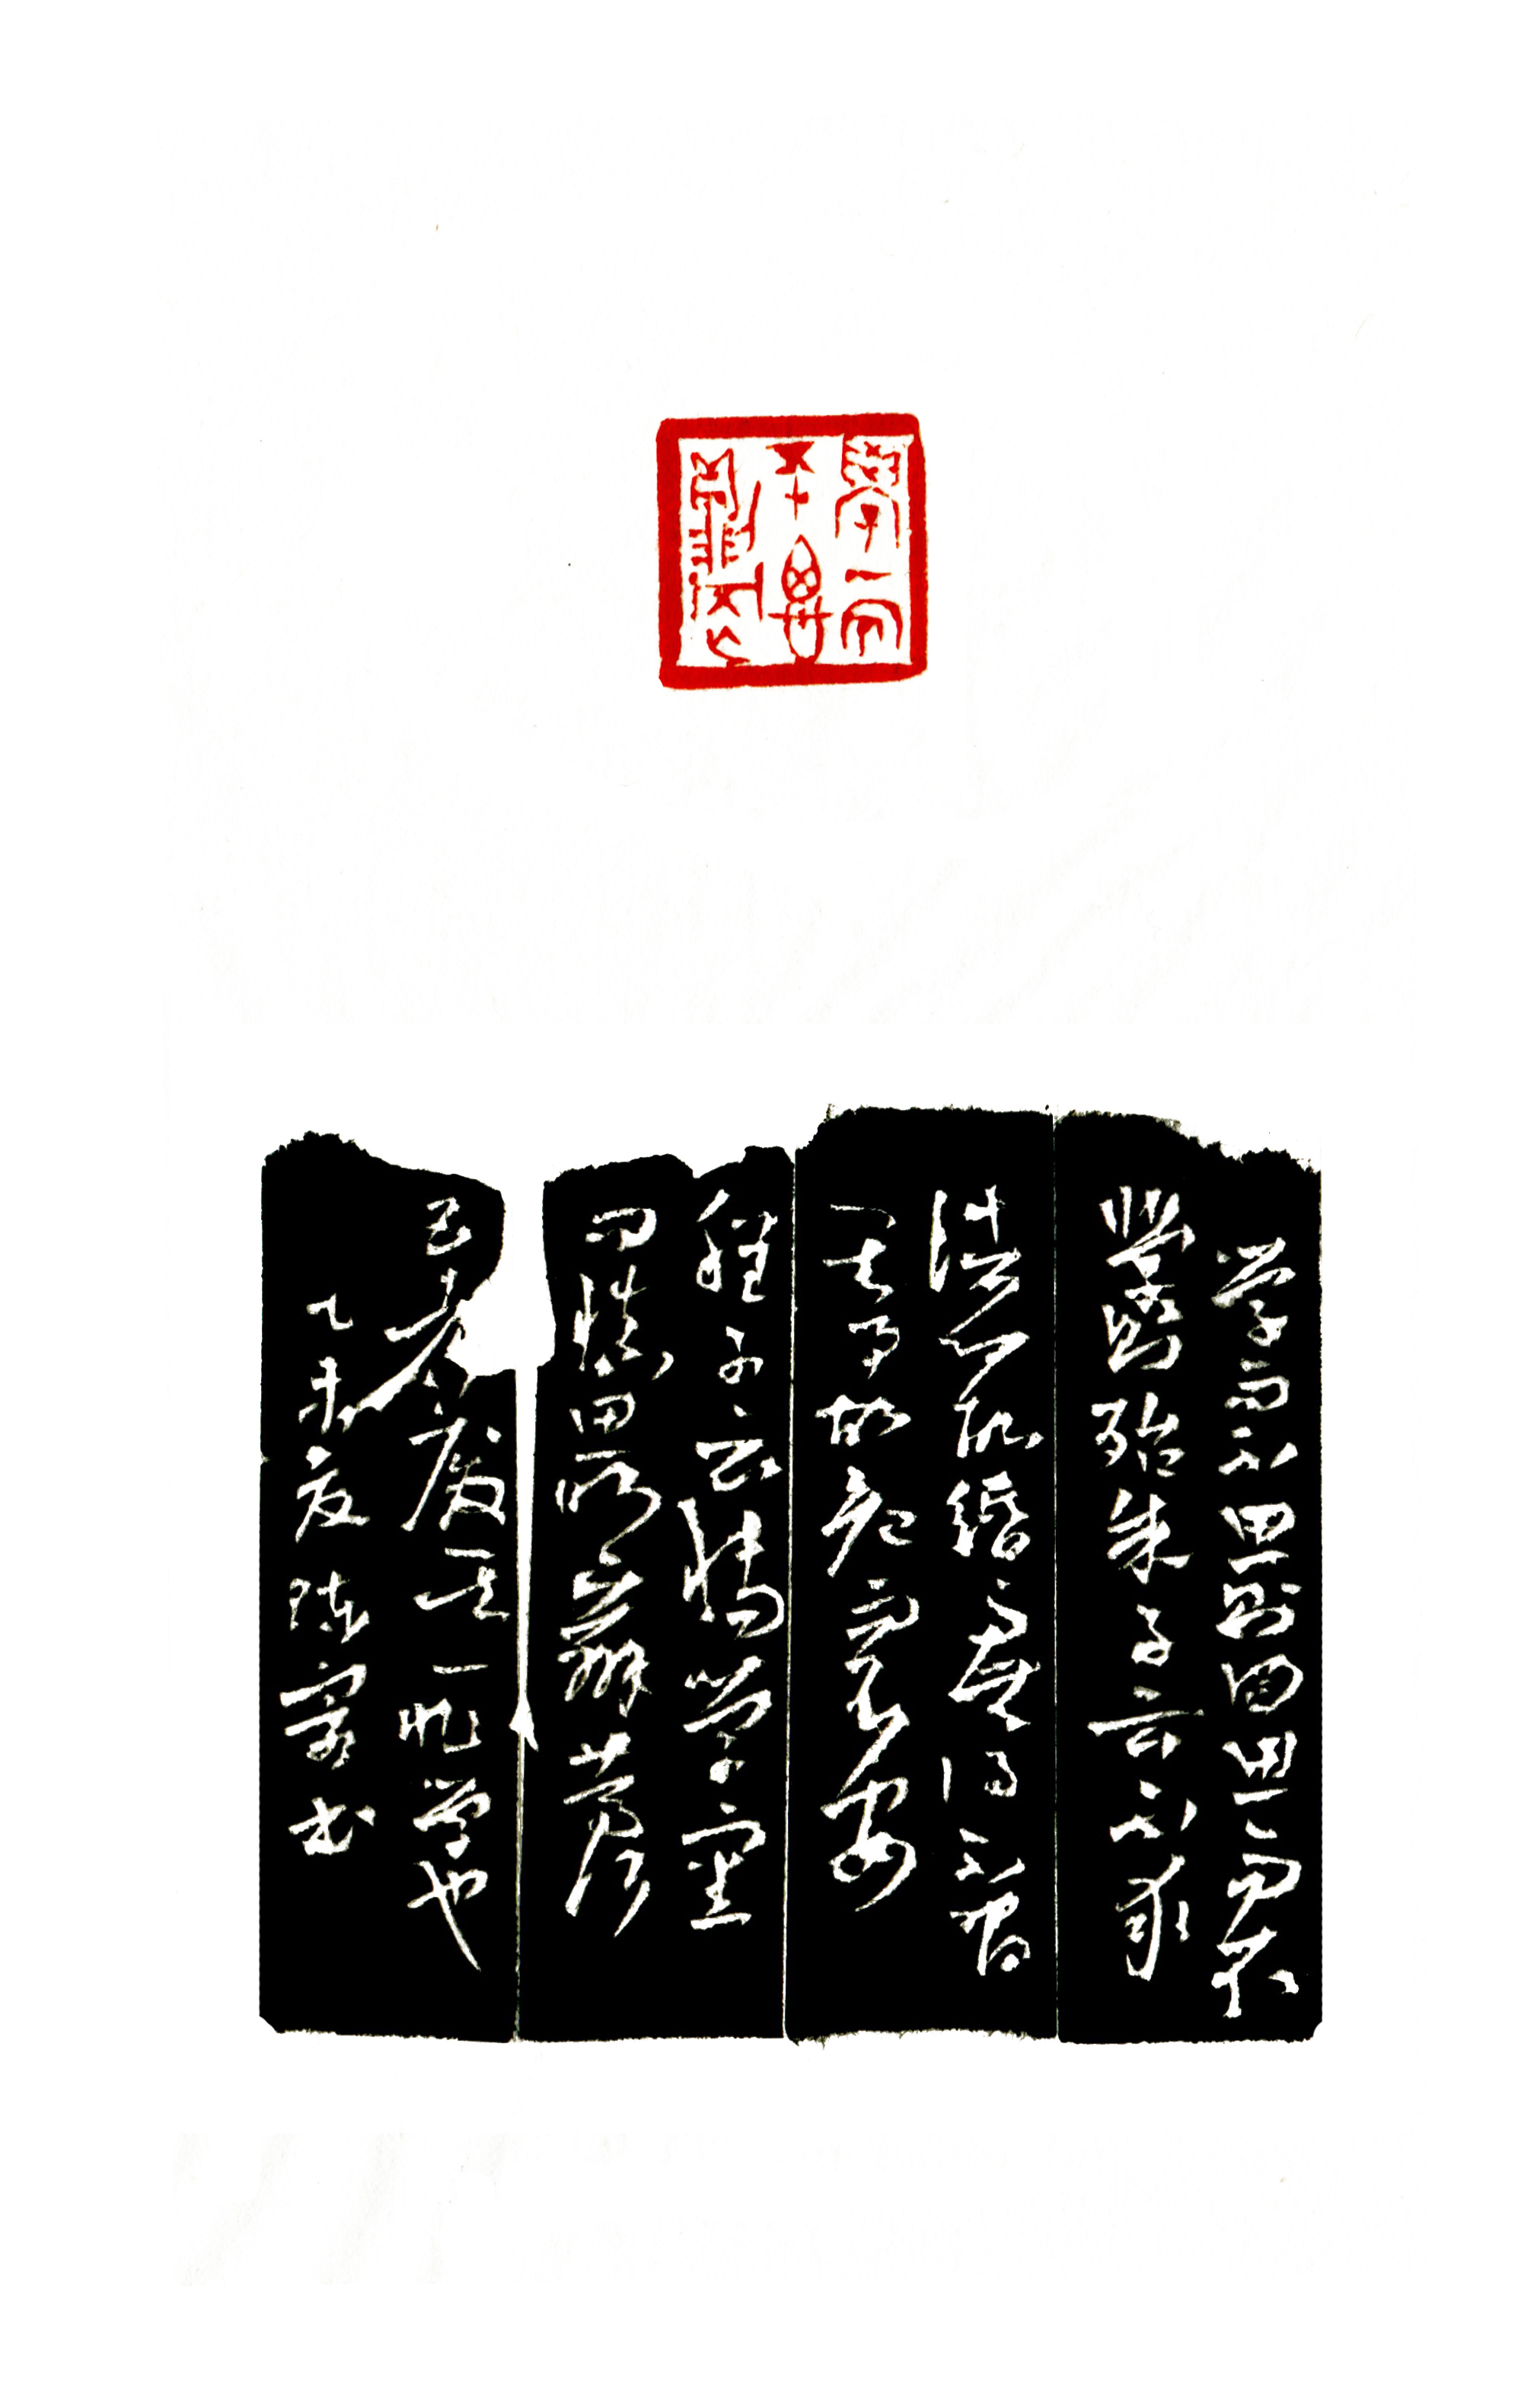 學而
不思
則罔
学而不思則罔思而不
學則殆朱子云不求
諸心故昏而無得不習
其事故危而不安
程子云博学審
问慎思明辨篤行
五者廢其一非学也
乙未夏陳书